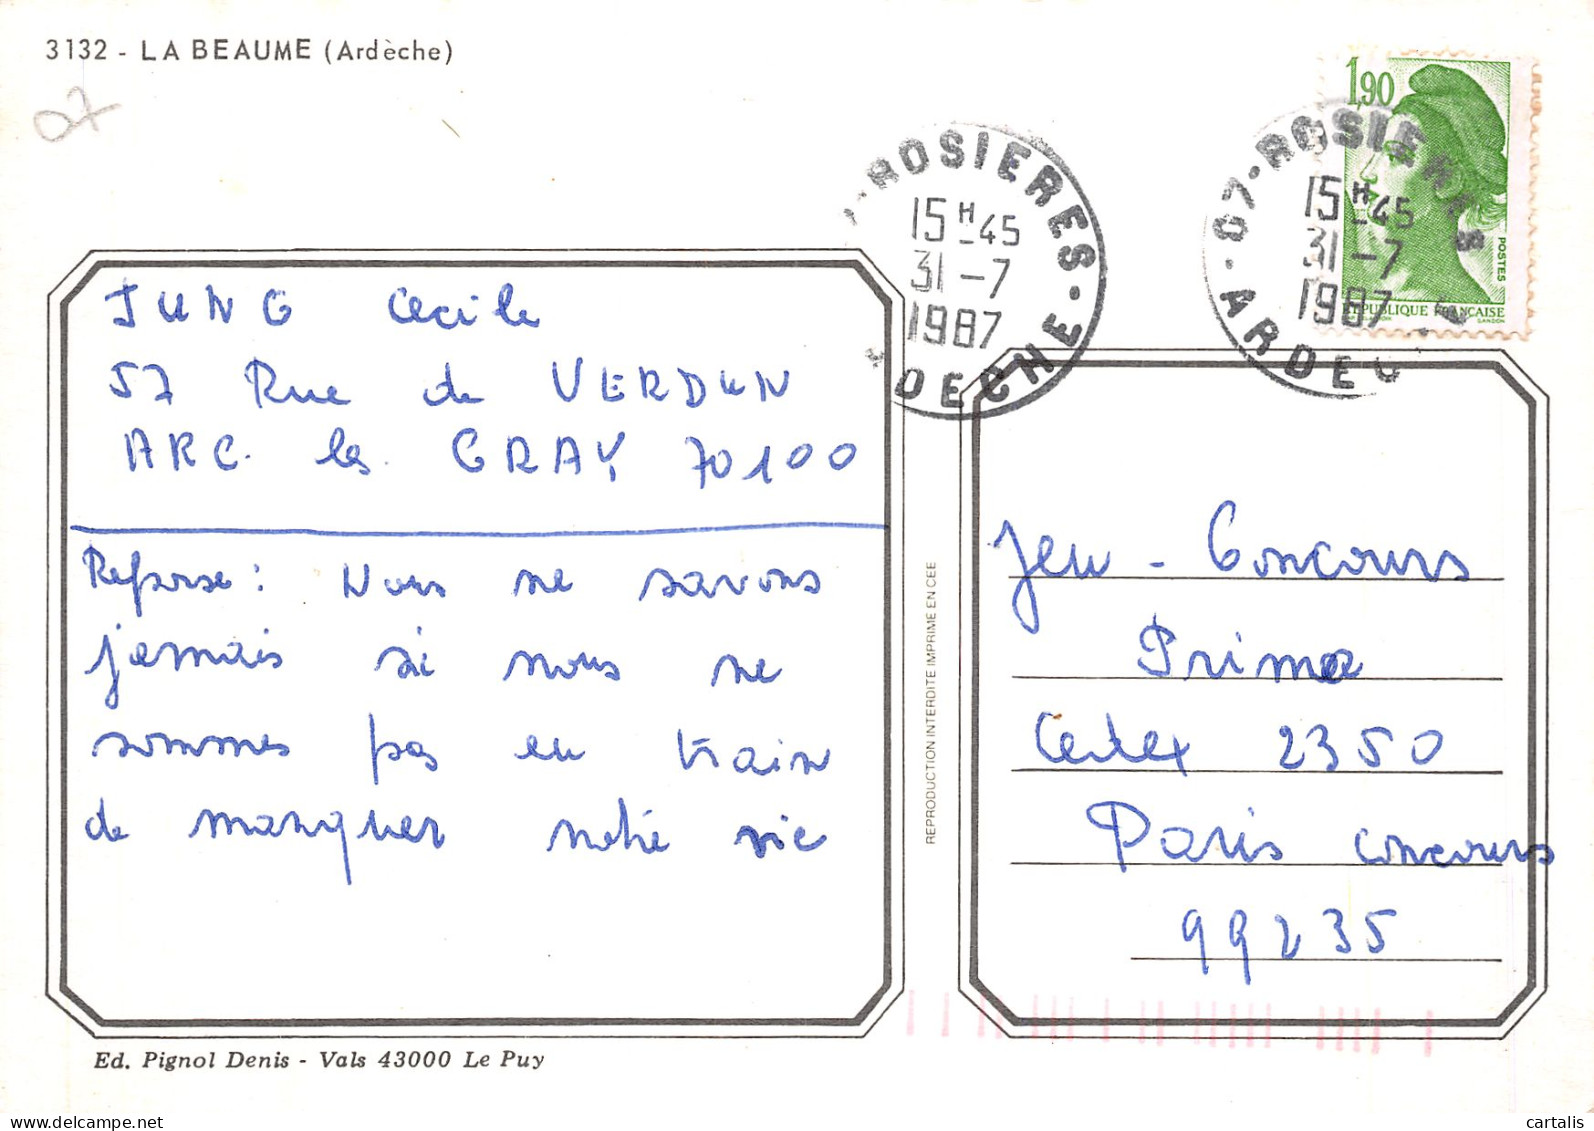 3132 - LA BEAUME (Ardèche)
07
1,90
POSTES
RÉPUBLIQUE FRANÇAISE
GANDON
ROSIERES
15 H-45
31-7
1987
ARDECHE
07-ROSIERES
15 H-45
31-7
1987
ARDEC
JUNG Cecile
57 Rue de VERDUN
ARC les GRAY 70100
Reponse : Nous ne savons
jamais si nous ne
sommes pas en train
de manquer notre vie
REPRODUCTION INTERDITE IMPRIME EN CEE
Jeu - Concours
Prima
Cedex 2350
Paris concours
99235
Ed. Pignol Denis - Vals 43000 Le Puy
cartalis